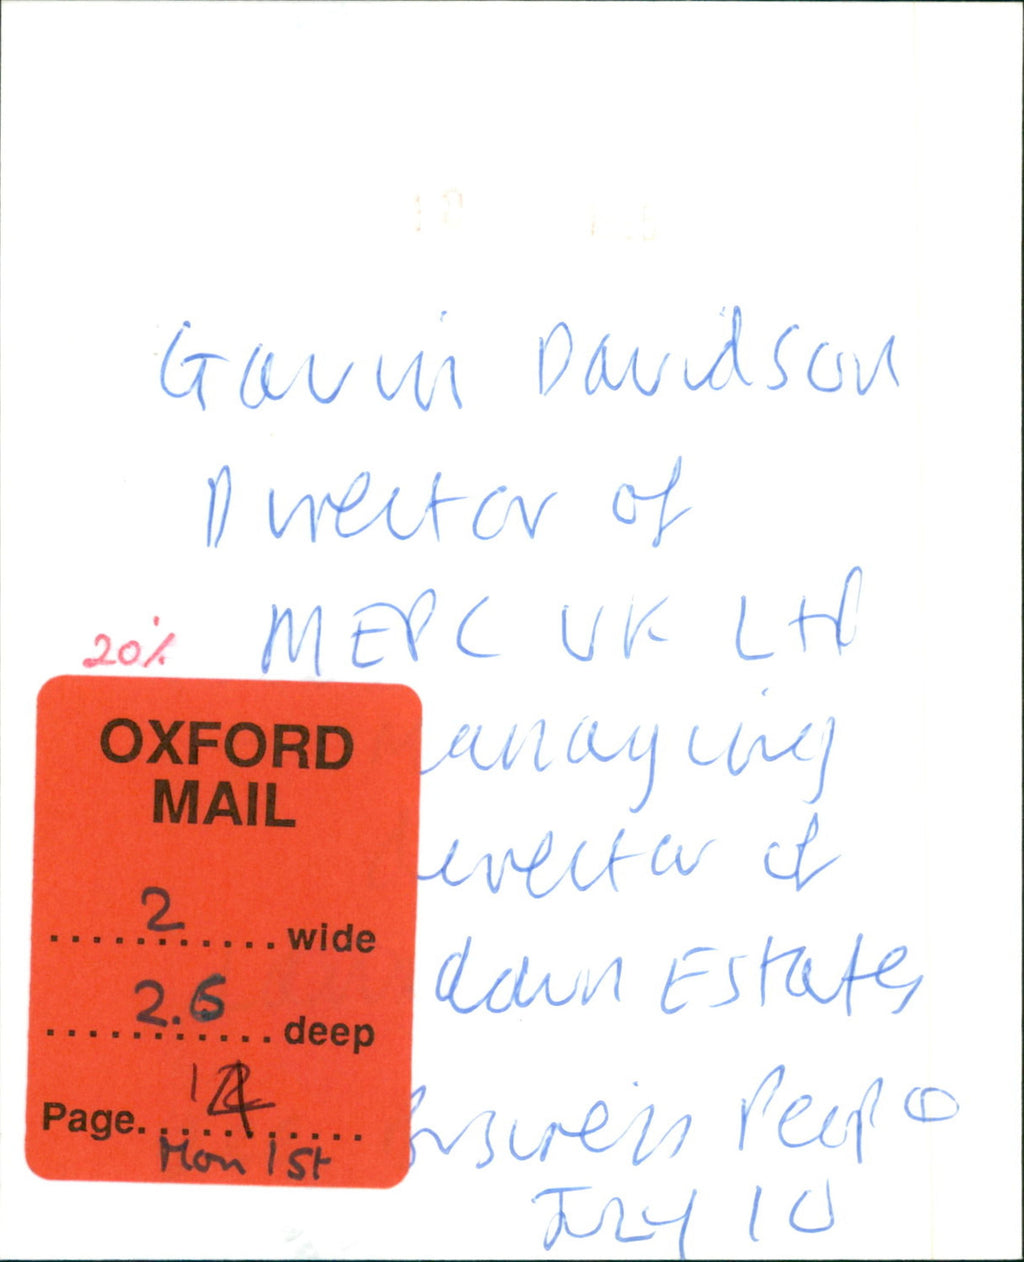 Gavin Davidson
Director of
MEPC UK Ltd
anaging
irector of
down Estates
Business People
July 10
20%
OXFORD
MAIL
2 wide
2.6 deep
Page. 14
Mon 1st